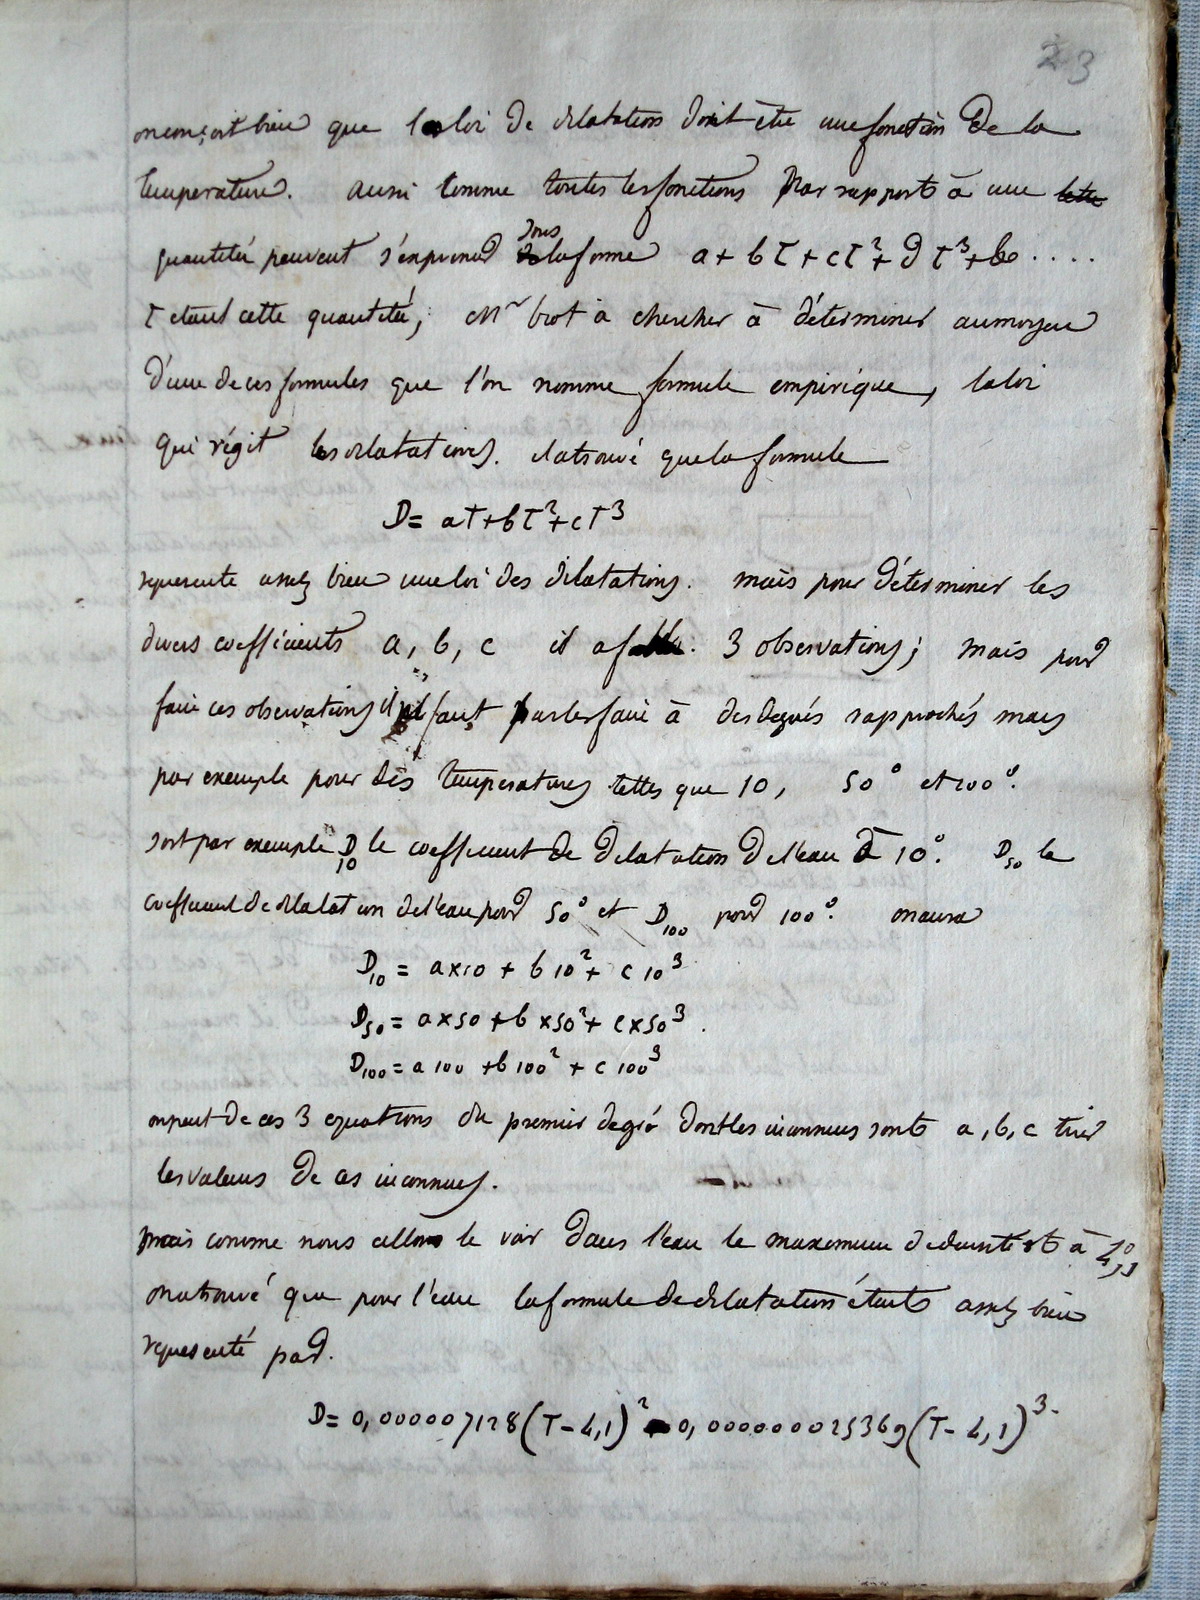 23
on conçoit bien que la loi de dilatation doit etre une fonction De la
temperature. aussi comme toutes les fonctions par rapport à une
quantité peuvent s'exprimer sous la forme a + bT + cT² + dT³ + &c ....
T etant cette quantité, Mr biot a chercher à déterminer au moyen
d'une de ces formules que l'on nomme formule empirique, la loi
qui régit les dilatations. il a trouvé que la formule
D = aT + bT² + cT³
represente assez bien une loi des dilatations. mais pour déterminer les
divers coefficients a, b, c il a fallu. 3 observations; mais pour
faire ces observations il faut pas les faire à des degrés rapprochés mais
par exemple pour des temperatures telles que 10, 50° et 100°.
soit par exemple D10 le coefficient de dilatation de l'eau à 10°. D50 le
coefficient de dilatation de l'eau pour 50° et D100 pour 100°. on aura
D10 = a×10 + b 10² + c 10³
D50 = a×50 + b×50² + c×50³.
D100 = a 100 + b 100² + c 100³
on peut de ces 3 equations du premier degré dont les inconnues sont a, b, c tirer
les valeurs de ces inconnues.
mais comme nous allons le voir dans l'eau le maximum de densité est à
on a trouvé que pour l'eau la formule de dilatation étant assez bien
representé par.
D = 0,000007128(T - 4,1)² - 0,000000025369(T - 4,1)³.